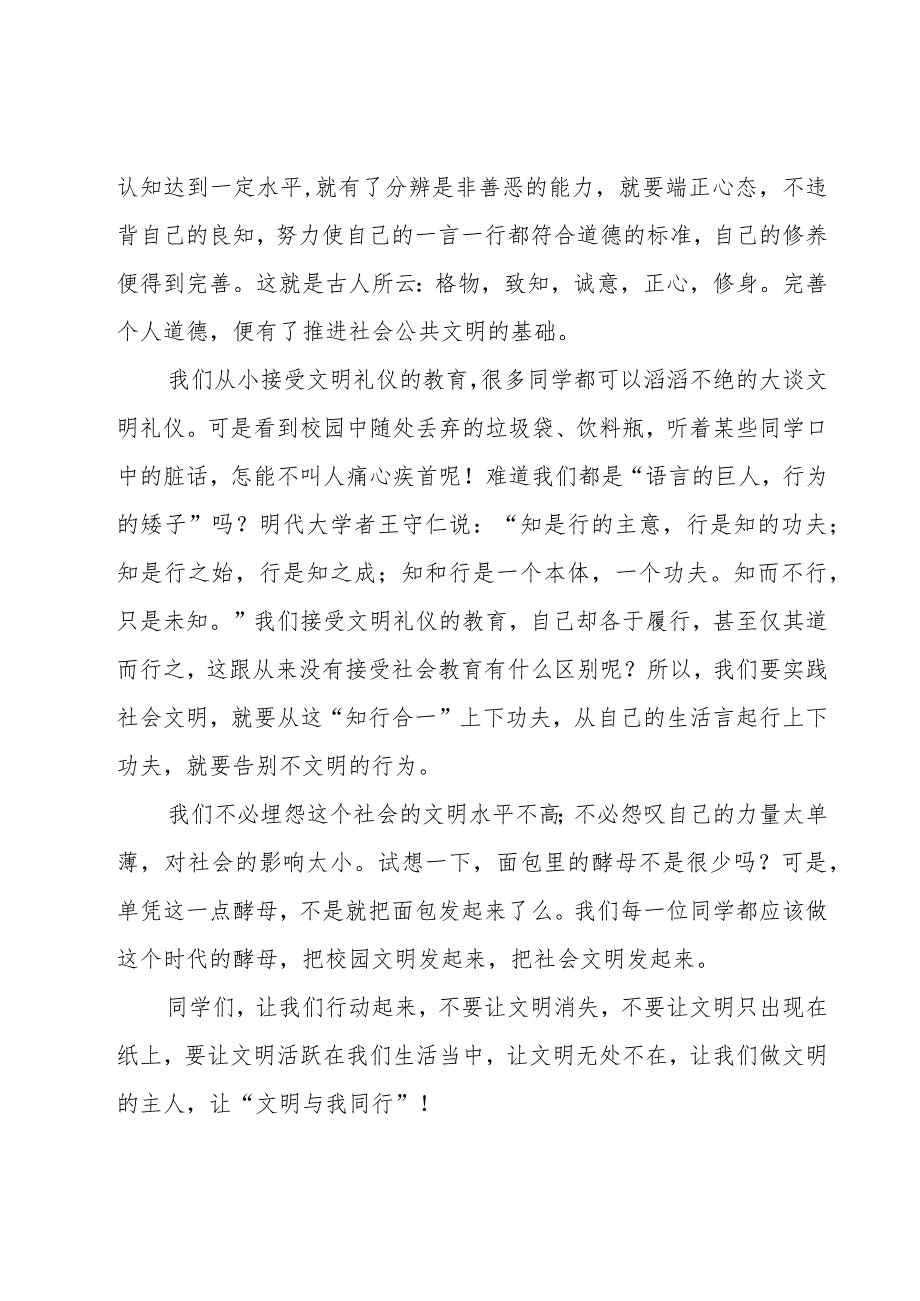 认知达到一定水平,就有了分辨是非善恶的能力，就要端正心态，不违
背自己的良知，努力使自己的一言一行都符合道德的标准，自己的修养
便得到完善。这就是古人所云：格物，致知，诚意，正心，修身。完善
个人道德，便有了推进社会公共文明的基础。
我们从小接受文明礼仪的教育，很多同学都可以滔滔不绝的大谈文
明礼仪。可是看到校园中随处丢弃的垃圾袋、饮料瓶，听着某些同学口
中的脏话，怎能不叫人痛心疾首呢！难道我们都是“语言的巨人，行为
的矮子”吗？明代大学者王守仁说：“知是行的主意，行是知的功夫；
知是行之始，行是知之成；知和行是一个本体，一个功夫。知而不行，
只是未知。”我们接受文明礼仪的教育，自己却各于履行，甚至仅其道
而行之，这跟从来没有接受社会教育有什么区别呢？所以，我们要实践
社会文明，就要从这“知行合一”上下功夫，从自己的生活言起行上下
功夫，就要告别不文明的行为。
我们不必埋怨这个社会的文明水平不高；不必怨叹自己的力量太单
薄，对社会的影响太小。试想一下，面包里的酵母不是很少吗？可是，
单凭这一点酵母，不是就把面包发起来了么。我们每一位同学都应该做
这个时代的酵母，把校园文明发起来，把社会文明发起来。
同学们，让我们行动起来，不要让文明消失，不要让文明只出现在
纸上，要让文明活跃在我们生活当中，让文明无处不在，让我们做文明
的主人，让“文明与我同行”！